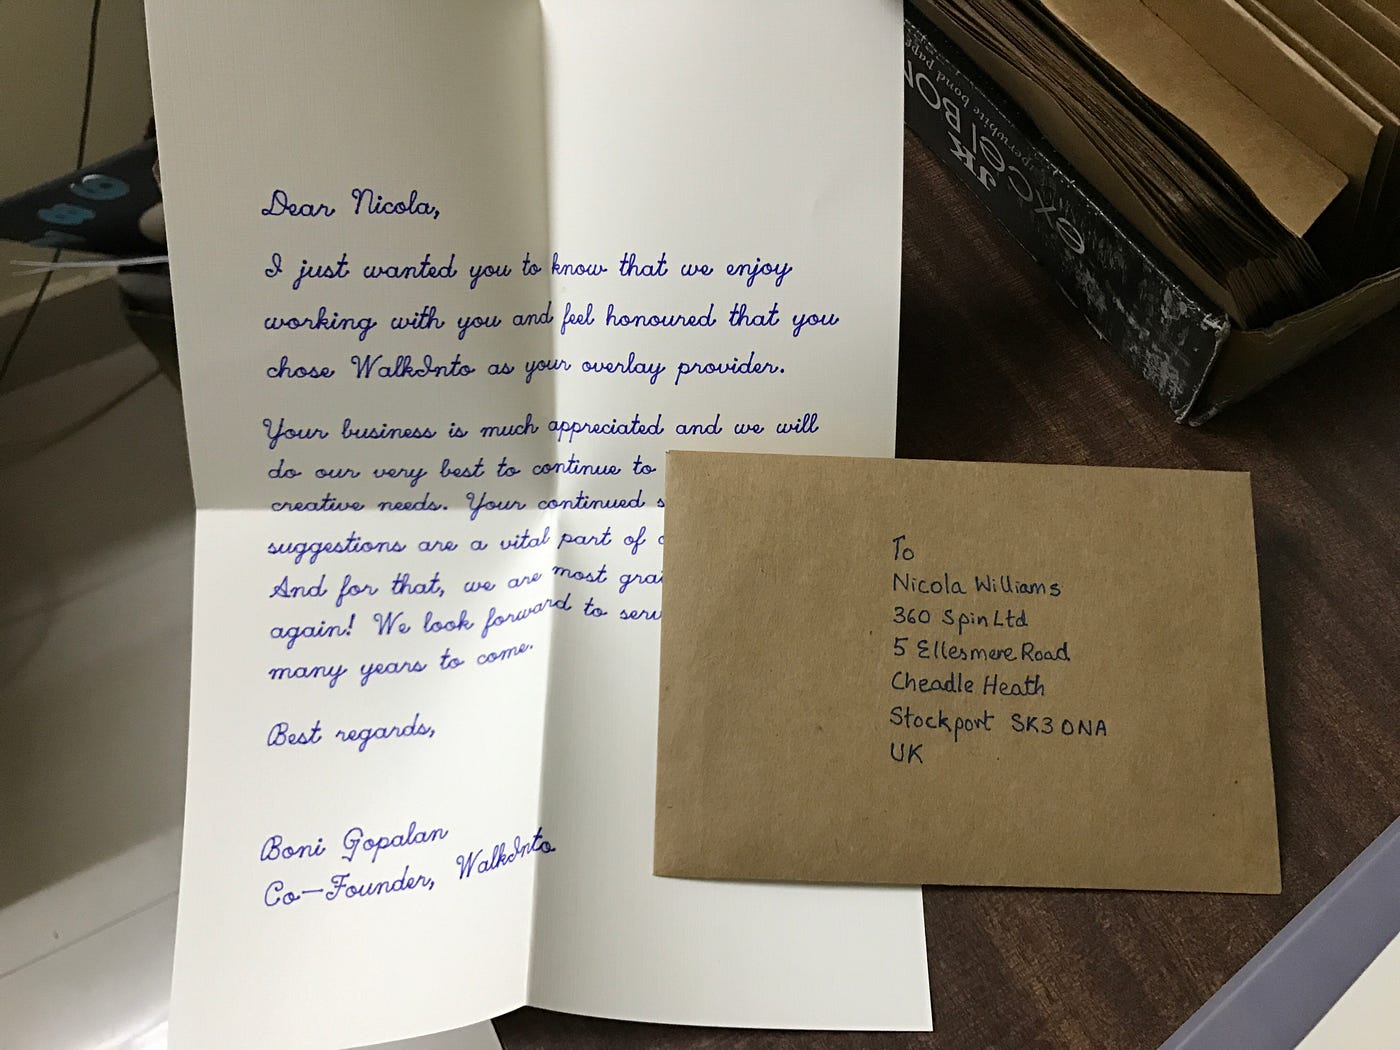 Dear Nicola,
I just wanted you to know that we enjoy
working with you and feel honoured that you
chose WalkInto as your overlay provider.
Your business is much appreciated and we will
do our very best to continue to
creative needs. Your continued s
suggestions are a vital part of
And for that, we are most
again! We look forward to
many years to come.
Best regards,
Boni Gopalan
Co-Founder, WalkInto
To
Nicola Williams
360 Spin Ltd
5 Ellesmere Road
Cheadle Heath
Stockport SK3 0NA
UK
JK
excel BON
perwhite bond pape